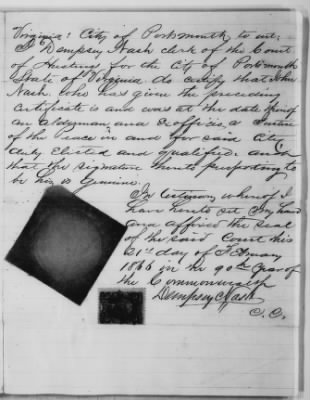 Virginia: City of Portsmouth to wit:
I Dempsey Nash clerk of the Court
of Husting for the City of Portsmouth
State of Virginia do certify that John
Nash who has given the preceding
certificate is and was at the date thereof
an alderman and Exofficio a Justice
of the Peace in and for said City
duly elected and qualified. and
that the signature thereto purporting to
be his is Genuine.
In testimony whereof I
have hereto set my hand
and affixed the seal
of the said Court this
21st day of February
1866 in the 90th year of
the Commonwealth
Dempsey Nash
C. C.